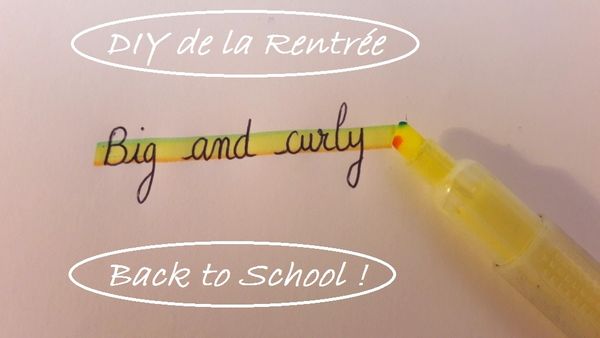 DIY de la Rentrée
Big and curly
Back to School !